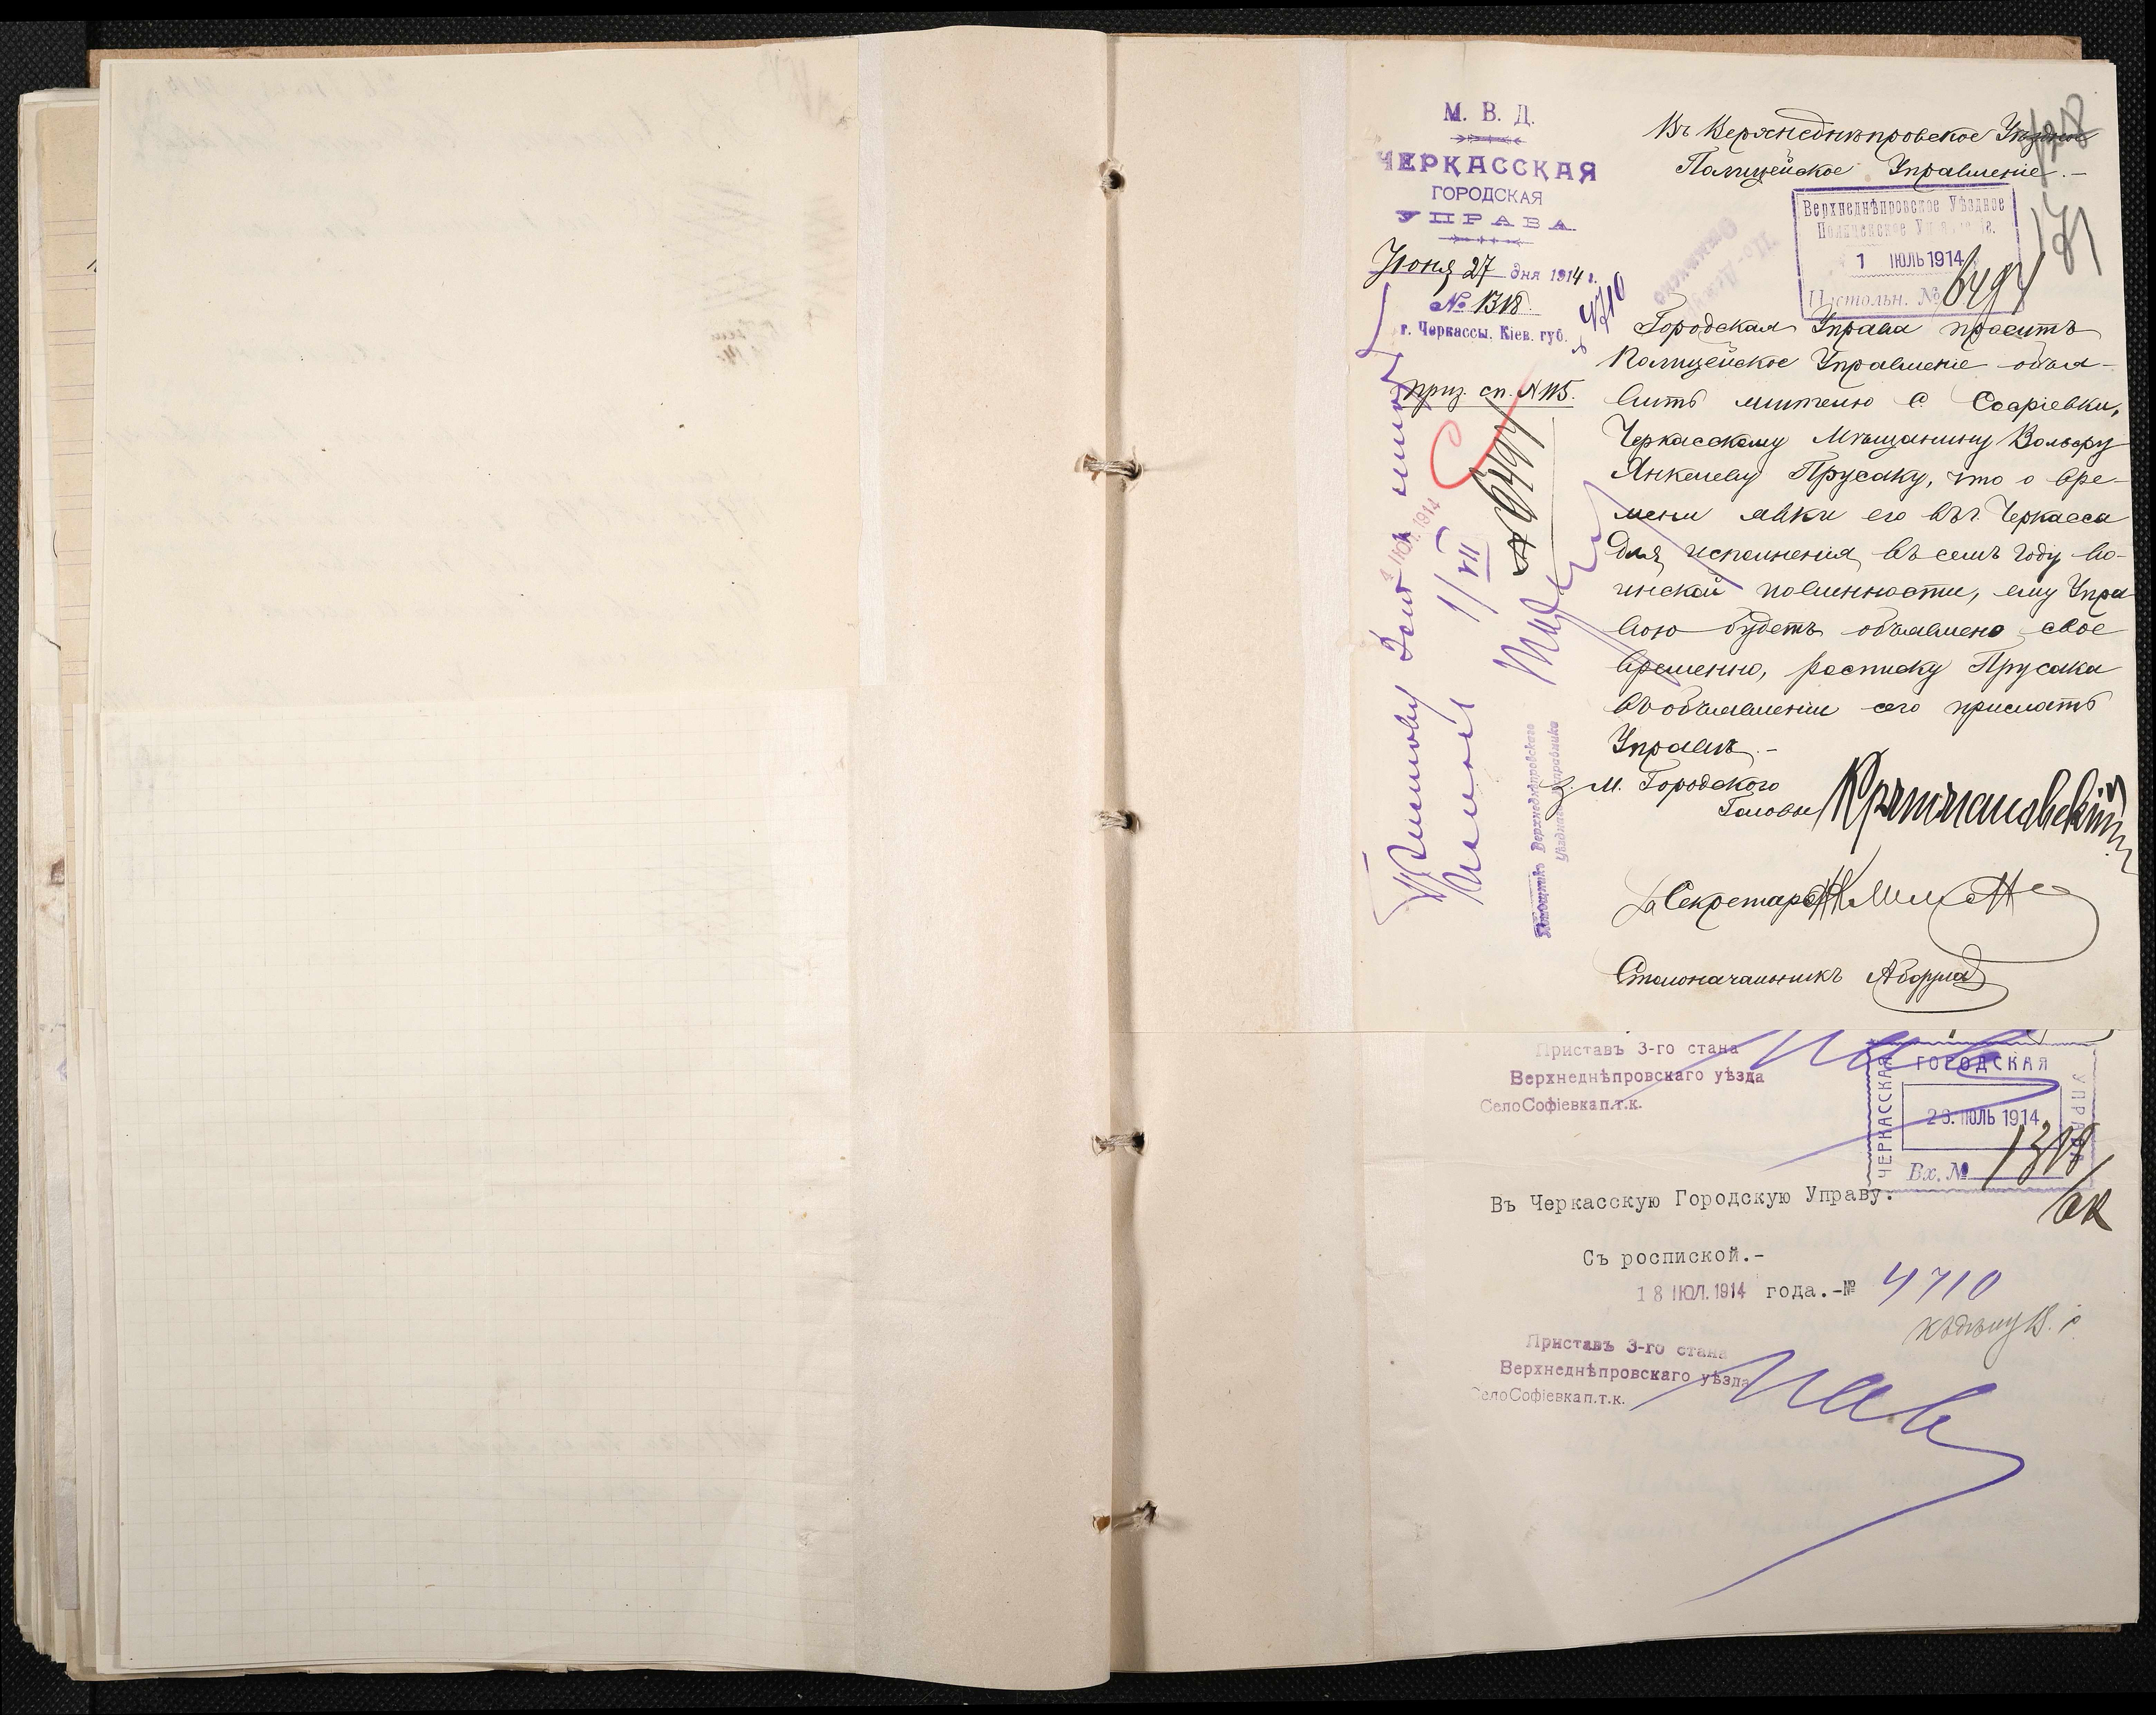 М. В. Д.
ЧЕРКАССКАЯ
ГОРОДСКАЯ
УПРАВА
Июня 27 дня 1914 г.
№ 1318.
г. Черкассы, Кіев. губ.
приз. сп. № 115.
Въ Верхнеднѣпровское Уѣздное
Полицейское Управленіе.-
Верхнеднѣпровское Уѣздное
1 ІЮЛЬ 1914
Настольн. № 6494
4710
Городская Управа проситъ
Полицейское Управленіе объя-
вить жителю с. Софіевки,
Черкасскому Мѣщанину Вольфу
Янкелеву Прусаку, что о вре-
мени явки его въ г. Черкассы
для исполненія въ семъ году во-
инской повинности, ему Упра-
вою будетъ объявлено свое
временно, росписку Прусака
въ объявленіи сего прислать
Управѣ.-
З. М. Городского
Головы
За Секретаря
Столоначальникъ
6494
1/VII
Помощникъ Верхнеднѣпровскаго
Уѣзднаго Исправника
Приставъ 3-го стана
Верхнеднѣпровскаго уѣзда
Село Софіевка п.т.к.
ЧЕРКАССКАЯ ГОРОДСКАЯ УПРАВА
26. ІЮЛЬ 1914
Вх. № 1318
Въ Черкасскую Городскую Управу.
Съ роспиской.-
18 ІЮЛ. 1914 года.-№ 4710
Приставъ 3-го стана
Верхнеднѣпровскаго уѣзда
Село Софіевка п.т.к.